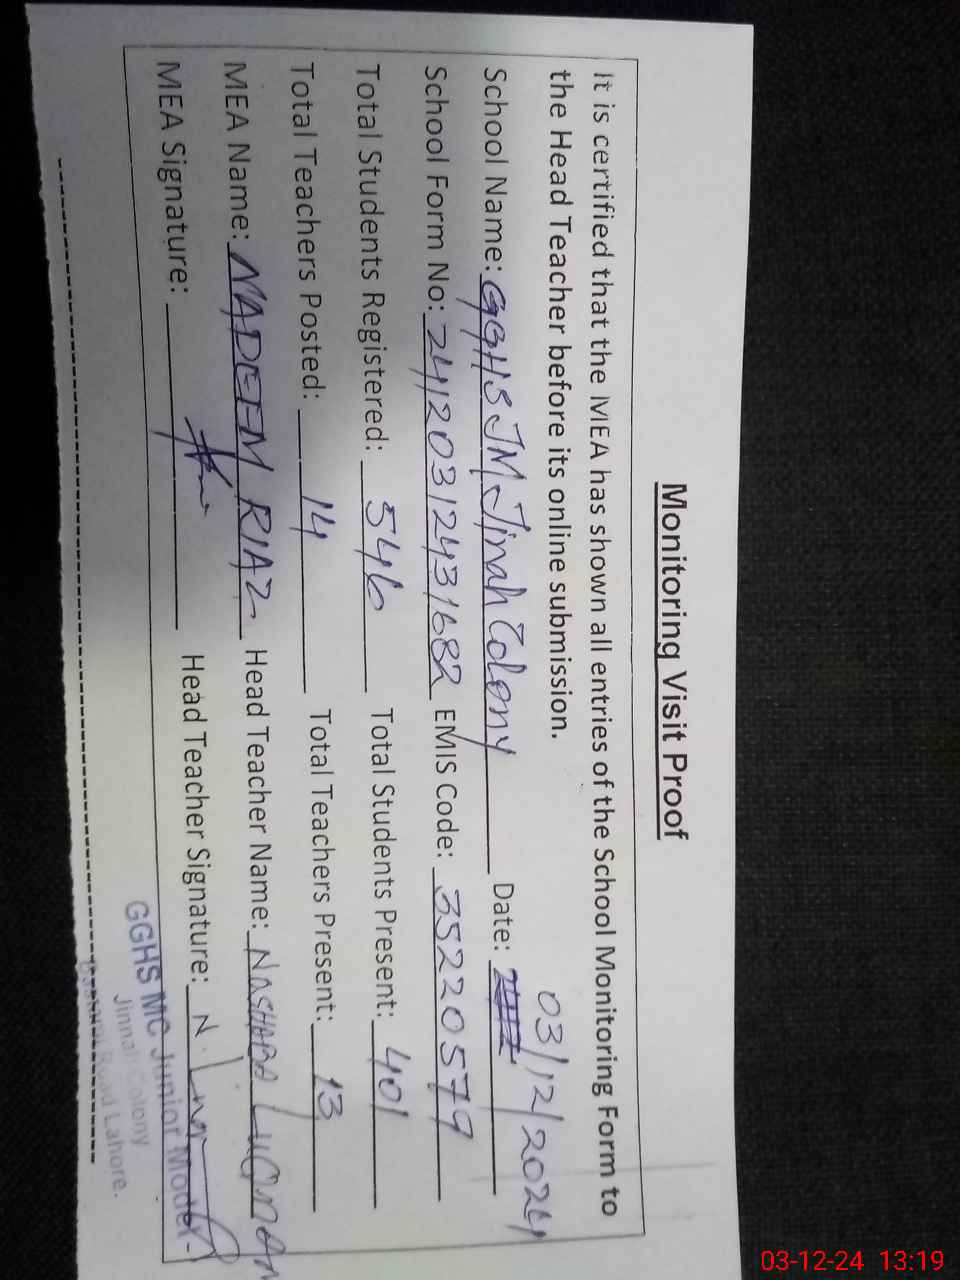 Monitoring Visit Proof
It is certified that the MEA has shown all entries of the School Monitoring Form to
the Head Teacher before its online submission.
School Name: GGHS JM Jinah Colony Date: 03/12/2024
School Form No: 24120312431682 EMIS Code: 35220579
Total Students Registered: 546 Total Students Present: 401
Total Teachers Posted: 14 Total Teachers Present: 13
MEA Name: NADEEM RIAZ Head Teacher Name: NASHABA LUQMAN
MEA Signature: Head Teacher Signature: N.
GGHS MC Junior Model
Jinnah Colony
Road Lahore.
03-12-24 13:19